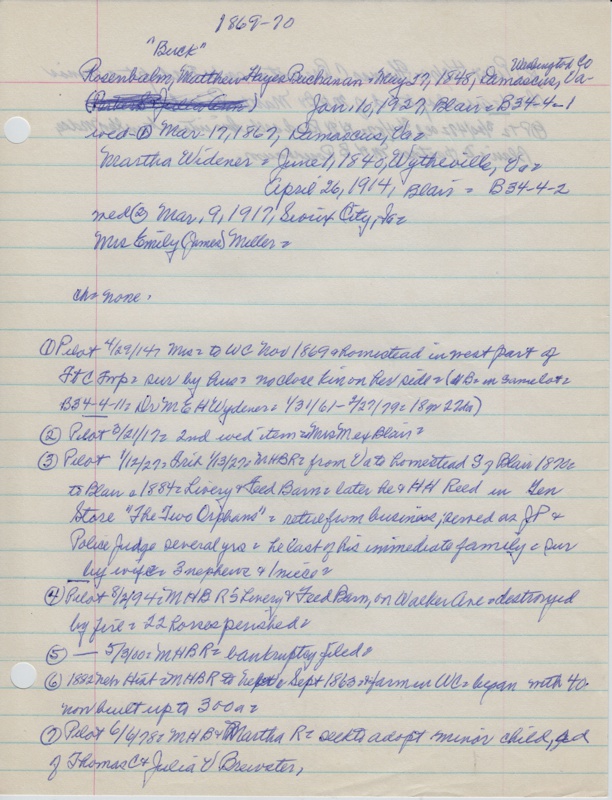 1869-70
"Buck"
Washington Co
Rosenbalm, Matthew Hayes Buchanan = May 27, 1848, Damascus, Va-
Jan. 10, 1927, Blair = B34-4-1
wed ① Mar 17, 1867, Damascus, Va=
Martha Widener = June 1, 1840, Wytheville, Va=
April 26, 1914, Blair = B34-4-2
wed ② Mar, 9, 1917, Sioux City, Ia=
Mrs Emily (James) Miller=
Ch= none.
① Pilot 4/29/14= Mrs = to WC Nov 1869 = homestead in west part of
Ft C Twp = sur by hus = no close kin on her side = (NB = in same lot =
B34-4-11 = Dr M E H Wydener = 1/31/61 - 2/27/79 = 18y 27da)
② Pilot 3/21/17 = 2nd wed item = Mrs Mex Blair =
③ Pilot 1/12/27 = 1/13/27 = MHBR = from Va to homestead S of Blair 1870=
to Blair = 1884 = Livery & Feed Barn = later he & HH Reed in Gen
Store "The Two Orphans" = retire from business, served as JP &
Police Judge several yrs = he last of his immediate family = sur
by wife = 3 nephews & 1 niece =
④ Pilot 8/2/94 = MHB R's Livery & Feed Barn, on Walker Ave = destroyed
by fire = 22 horses perished =
⑤ — 5/3/00 = MHBR = bankruptcy filed =
⑥ 1882 Neb Hist = MHBR to Sept 1863 = farm in WC = began with 40-
now built up to 300a =
⑦ Pilot 6/6/78 = MHB & Martha R = seek to adopt minor child,
of Thomas C & Julia V Brewster,